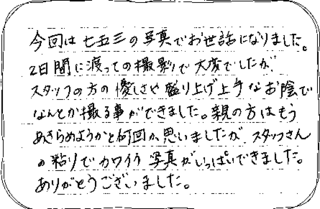 今回は七五三の写真でお世話になりました。
2日間に渡っての撮影で大変でしたが、
スタッフの方の優しさや盛り上げ上手なお陰で
なんとか撮る事ができました。親の方はもう
あきらめようかと何回か思いましたが、スタッフさん
の粘りでカワイイ写真がいっぱいできました。
ありがとうございました。